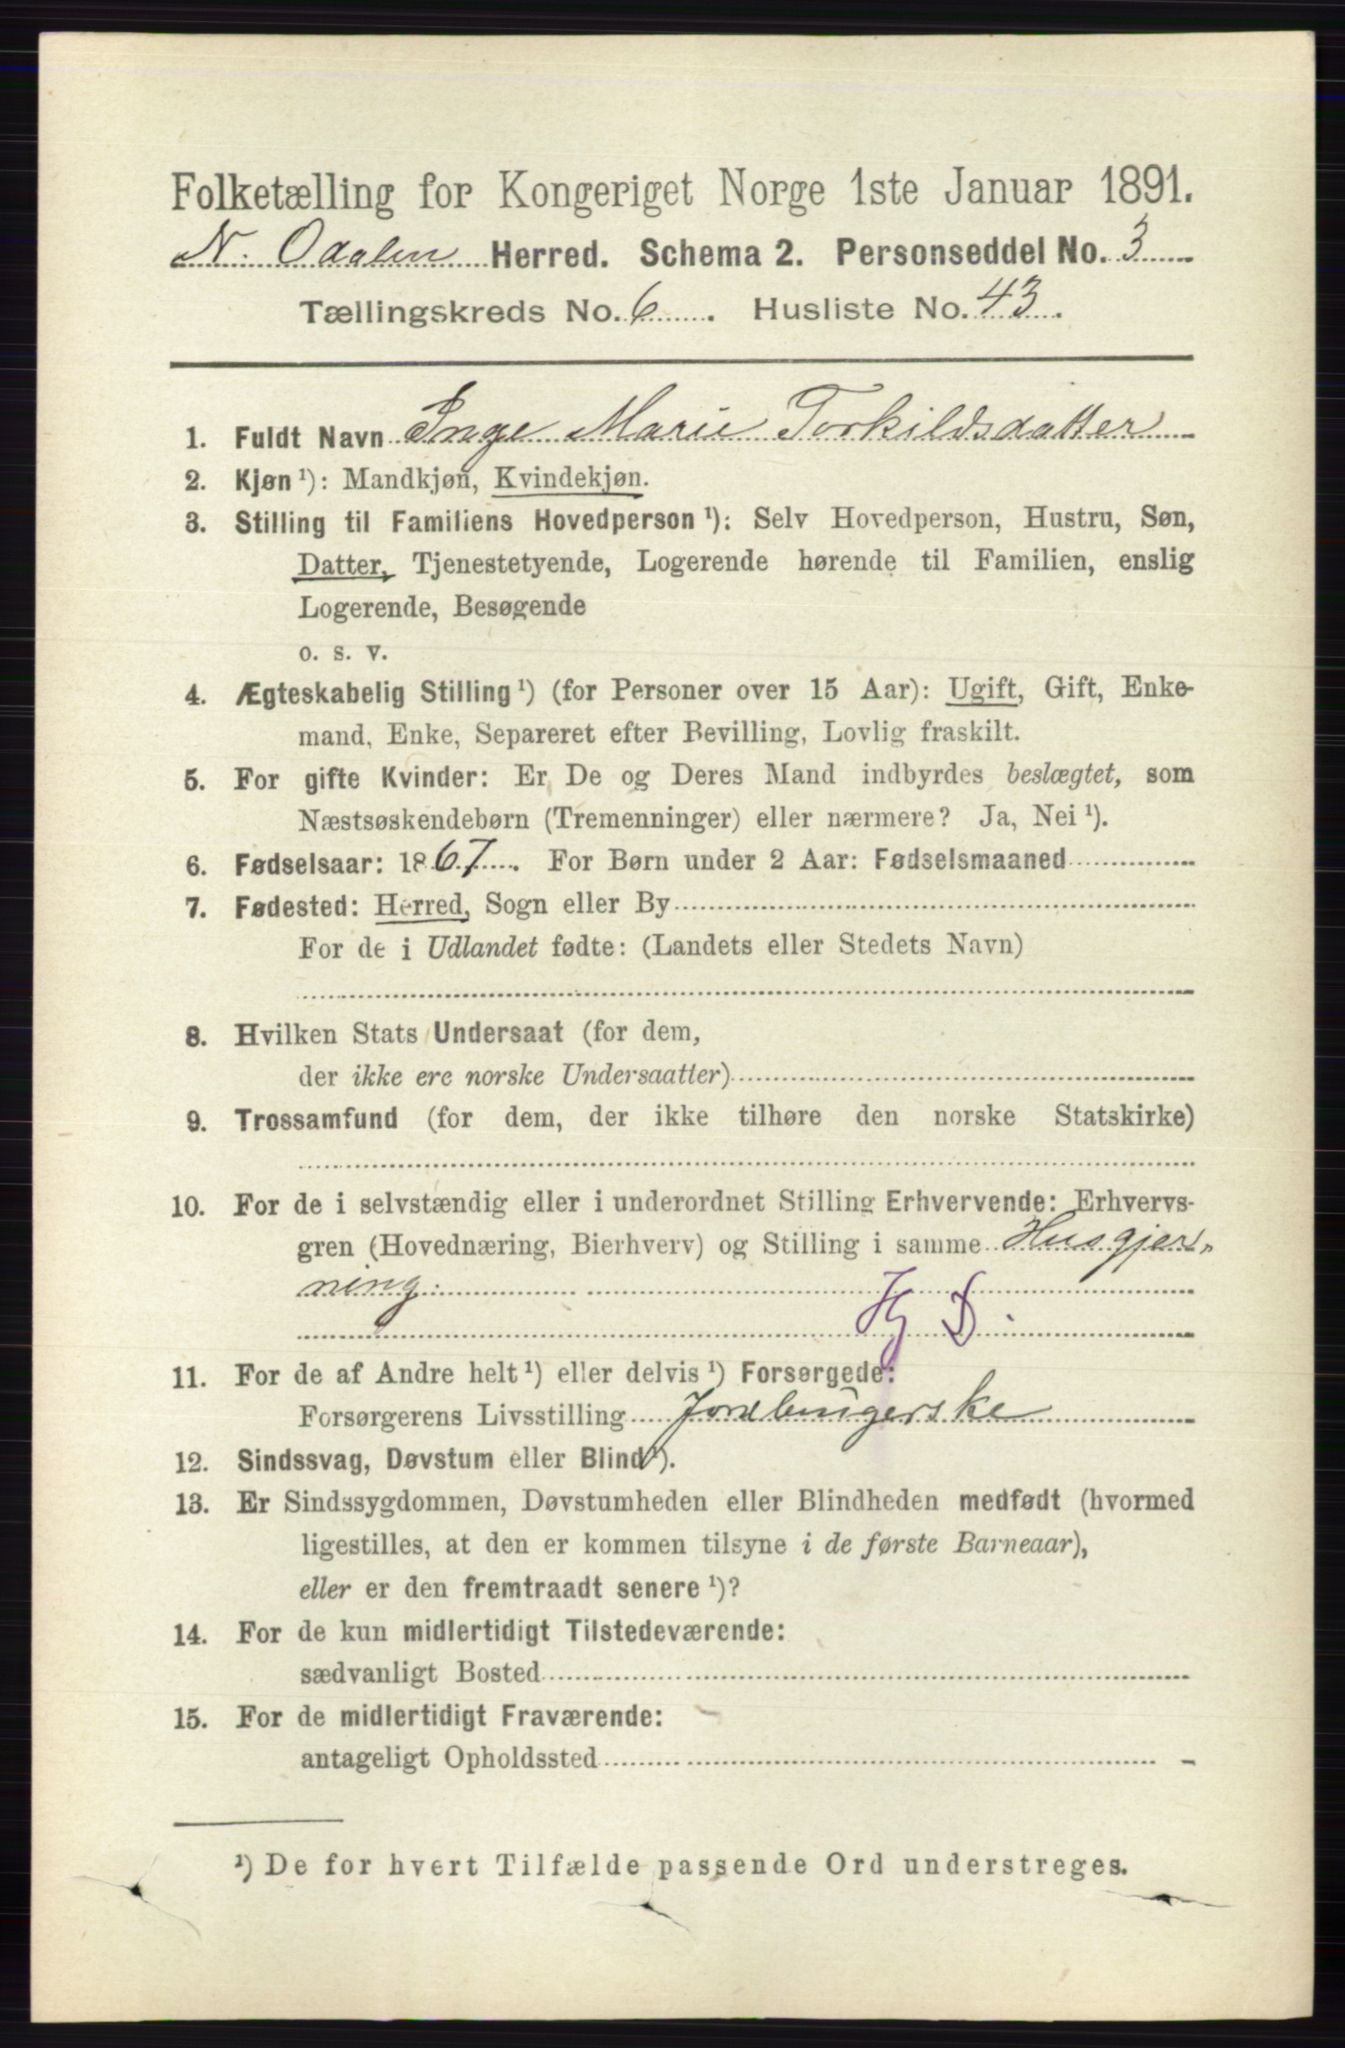 Folketælling for Kongeriget Norge 1ste Januar 1891.
N. Odalen Herred. Schema 2. Personseddel No. 3
Tællingskreds No. 6. Husliste No. 43.
1. Fuldt Navn Inge Marie Torkildsdatter
2. Kjøn ¹): Mandkjøn, Kvindekjøn.
3. Stilling til Familiens Hovedperson ¹): Selv Hovedperson, Hustru, Søn,
Datter, Tjenestetyende, Logerende hørende til Familien, enslig
Logerende, Besøgende
o. s. v.
4. Ægteskabelig Stilling ¹) (for Personer over 15 Aar): Ugift, Gift, Enke-
mand, Enke, Separeret efter Bevilling, Lovlig fraskilt.
5. For gifte Kvinder: Er De og Deres Mand indbyrdes beslægtet, som
Næstsøskendebørn (Tremenninger) eller nærmere? Ja, Nei ¹).
6. Fødselsaar: 1867. For Børn under 2 Aar: Fødselsmaaned
7. Fødested: Herred, Sogn eller By
For de i Udlandet fødte: (Landets eller Stedets Navn)
8. Hvilken Stats Undersaat (for dem,
der ikke ere norske Undersaatter)
9. Trossamfund (for dem, der ikke tilhøre den norske Statskirke)
10. For de i selvstændig eller i underordnet Stilling Erhvervende: Erhvervs-
gren (Hovednæring, Bierhverv) og Stilling i samme Husgjer-
ning.
Hg D.
11. For de af Andre helt ¹) eller delvis ¹) Forsørgede:
Forsørgerens Livsstilling Jordbrugerske
12. Sindssvag, Døvstum eller Blind ¹).
13. Er Sindssygdommen, Døvstumheden eller Blindheden medfødt (hvormed
ligestilles, at den er kommen tilsyne i de første Barneaar),
eller er den fremtraadt senere ¹)?
14. For de kun midlertidigt Tilstedeværende:
sædvanligt Bosted
15. For de midlertidigt Fraværende:
antageligt Opholdssted
¹) De for hvert Tilfælde passende Ord understreges.